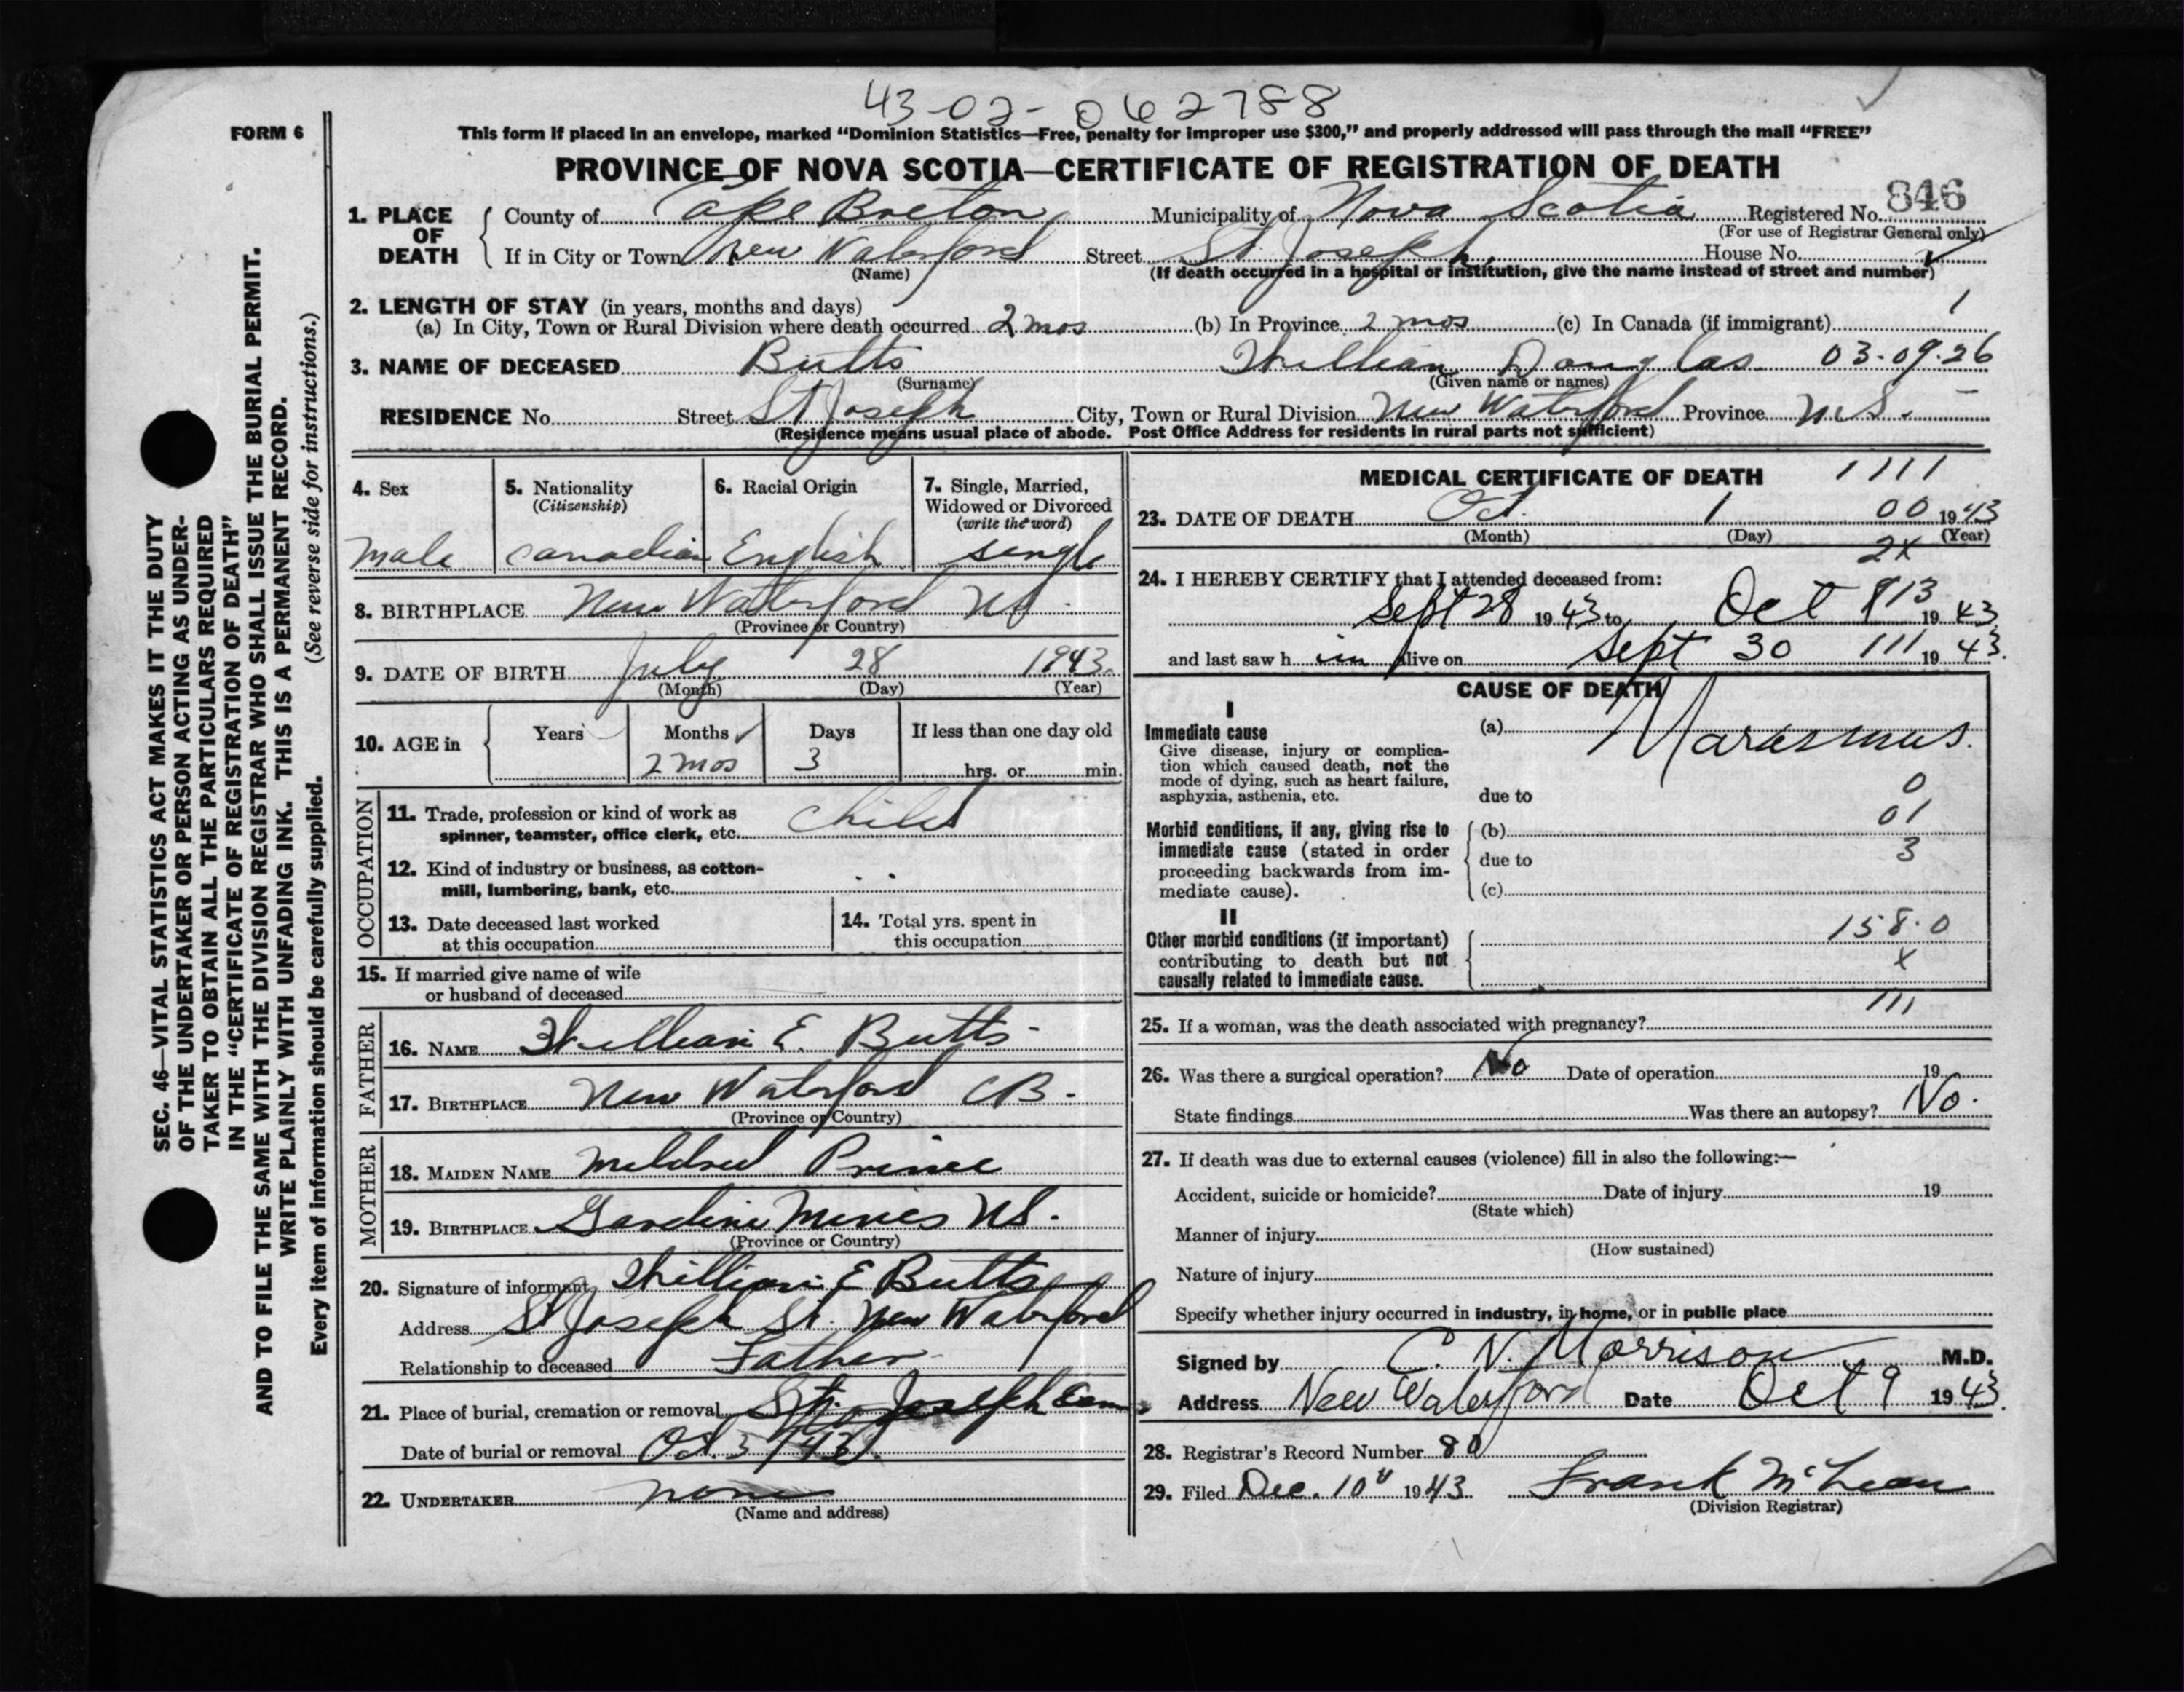 43-02-062788
FORM 6
This form if placed in an envelope, marked “Dominion Statistics—Free, penalty for improper use $300,” and properly addressed will pass through the mail “FREE”
PROVINCE OF NOVA SCOTIA—CERTIFICATE OF REGISTRATION OF DEATH
846
1. PLACE OF DEATH County of Cape Breton Municipality of Nova Scotia Registered No.
(For use of Registrar General only)
If in City or Town New Waterford Street St. Joseph House No.
(Name) (If death occurred in a hospital or institution, give the name instead of street and number)
2. LENGTH OF STAY (in years, months and days)
(a) In City, Town or Rural Division where death occurred 2 mos (b) In Province 2 mos (c) In Canada (if immigrant)
3. NAME OF DECEASED Butts William Douglas 03-09-26
(Surname) (Given name or names)
RESIDENCE No. Street St Joseph City, Town or Rural Division New Waterford Province N.S.
(Residence means usual place of abode. Post Office Address for residents in rural parts not sufficient)
4. Sex
male
5. Nationality
(Citizenship)
Canadian
6. Racial Origin
English
7. Single, Married,
Widowed or Divorced
(write the word)
single
8. BIRTHPLACE New Waterford NS.
(Province or Country)
9. DATE OF BIRTH July 28 1943
(Month) (Day) (Year)
10. AGE in Years Months Days If less than one day old
2 mos 3 hrs. or min.
OCCUPATION
11. Trade, profession or kind of work as
spinner, teamster, office clerk, etc. child
12. Kind of industry or business, as cotton-
mill, lumbering, bank, etc.
13. Date deceased last worked
at this occupation
14. Total yrs. spent in
this occupation
15. If married give name of wife
or husband of deceased
FATHER
16. NAME William E. Butts
17. BIRTHPLACE New Waterford CB.
(Province or Country)
MOTHER
18. MAIDEN NAME Mildred Prince
19. BIRTHPLACE Gardine Mines NS.
(Province or Country)
20. Signature of informant William E Butts
Address St Joseph St. New Waterford
Relationship to deceased Father
21. Place of burial, cremation or removal St. Joseph Cem
Date of burial or removal Oct. 3 /43
22. UNDERTAKER none
(Name and address)
MEDICAL CERTIFICATE OF DEATH 1111
23. DATE OF DEATH Oct. 1 00 1943
(Month) (Day) (Year)
2x
24. I HEREBY CERTIFY that I attended deceased from:
Sept 28 1943 to Oct 13 1943
and last saw h im alive on Sept 30 111 1943.
CAUSE OF DEATH
I
Immediate cause
Give disease, injury or complica-
tion which caused death, not the
mode of dying, such as heart failure,
asphyxia, asthenia, etc.
(a) Marasmus.
0
due to
01
Morbid conditions, if any, giving rise to
immediate cause (stated in order
proceeding backwards from im-
mediate cause).
(b)
due to 3
(c)
II
Other morbid conditions (if important)
contributing to death but not
causally related to immediate cause.
158.0
x
111
25. If a woman, was the death associated with pregnancy?
26. Was there a surgical operation? No Date of operation 19
State findings Was there an autopsy? No.
27. If death was due to external causes (violence) fill in also the following:—
Accident, suicide or homicide? Date of injury 19
(State which)
Manner of injury
(How sustained)
Nature of injury
Specify whether injury occurred in industry, in home, or in public place
Signed by C. N. Morrison M.D.
Address New Waterford Date Oct 9 1943.
28. Registrar's Record Number 80
29. Filed Dec. 10 1943. Frank McLean
(Division Registrar)
SEC. 46—VITAL STATISTICS ACT MAKES IT THE DUTY
OF THE UNDERTAKER OR PERSON ACTING AS UNDER-
TAKER TO OBTAIN ALL THE PARTICULARS REQUIRED
IN THE “CERTIFICATE OF REGISTRATION OF DEATH”
AND TO FILE THE SAME WITH THE DIVISION REGISTRAR WHO SHALL ISSUE THE BURIAL PERMIT.
WRITE PLAINLY WITH UNFADING INK. THIS IS A PERMANENT RECORD.
Every item of information should be carefully supplied. (See reverse side for instructions.)